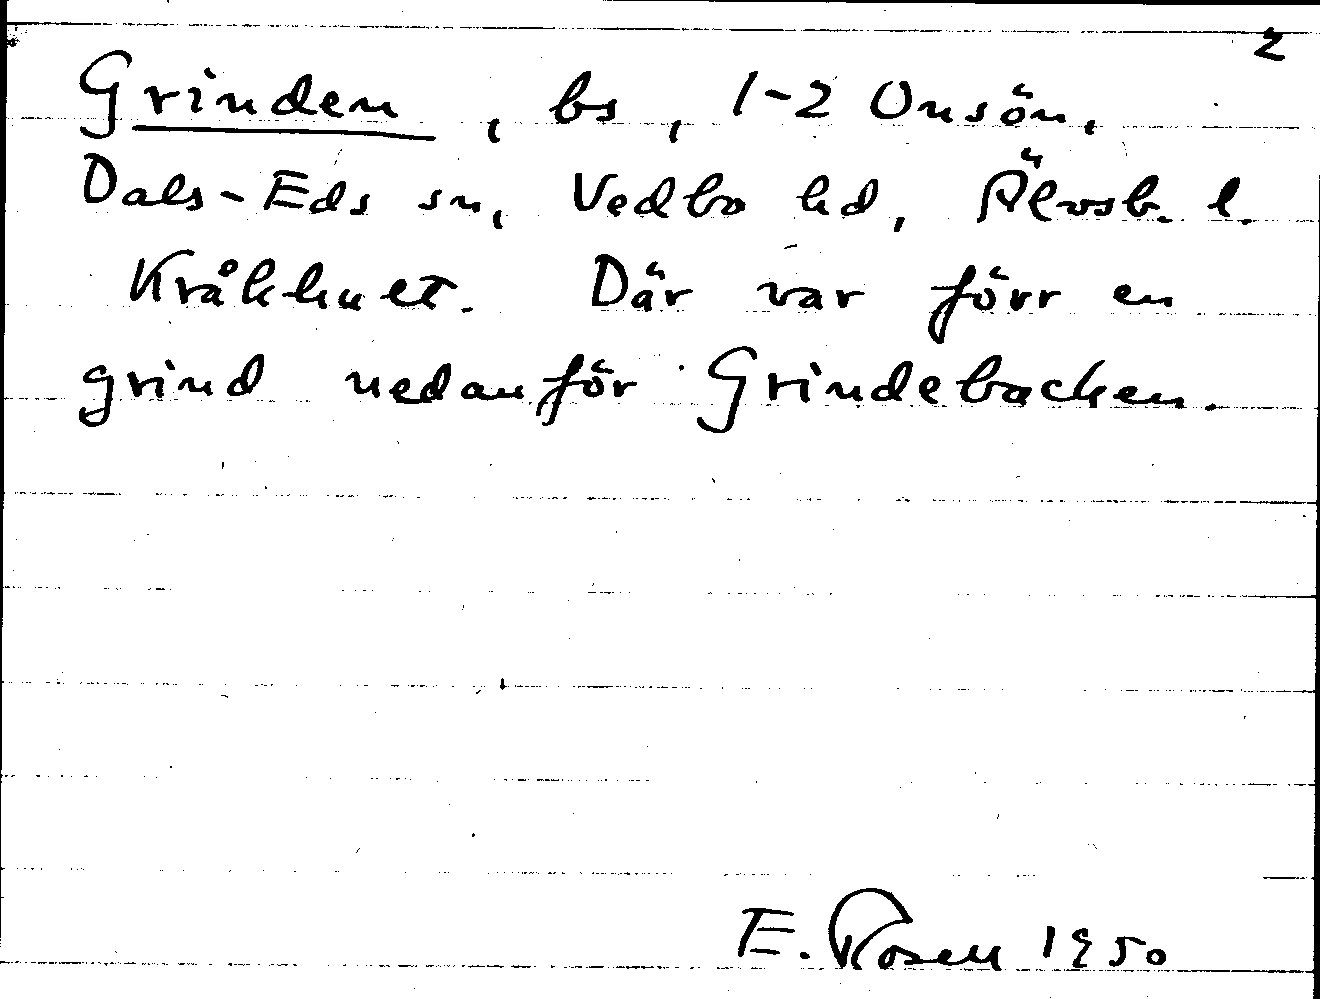 2
Grinden, bs, 1-2 Onsön,
Dals-Eds sn, Vedbo hd, Älvsb. l.
Kråkhult. Där var förr en
grind nedanför Grindebacken.
E. Rosen 1950